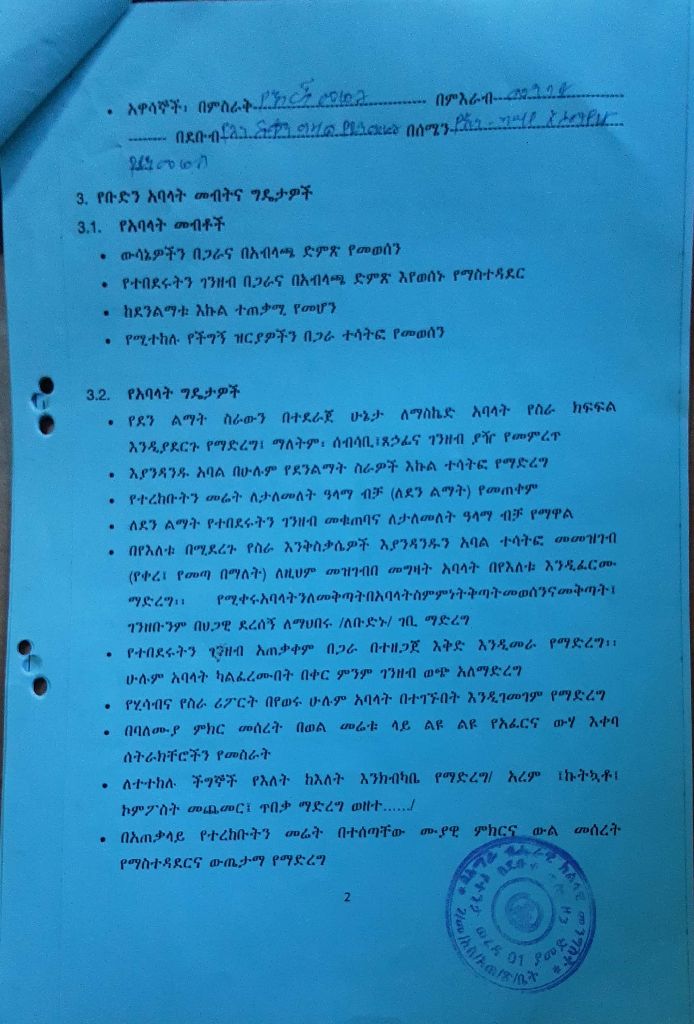 • አዋሳኞች፡ በምስራቅ በምእራብ መንገድ
በደቡብ በሰሜን
3. የቡድን አባላት መብትና ግዴታዎች
3.1. የአባላት መብቶች
• ውሳኔዎችን በጋራና በአብላጫ ድምጽ የመወሰን
• የተበደሩትን ገንዘብ በጋራና በአብላጫ ድምጽ እየወሰኑ የማስተዳደር
• ከደንልማቱ እኩል ተጠቃሚ የመሆን
• የሚተከሉ የችግኝ ዝርያዎችን በጋራ ተሳትፎ የመወሰን
3.2. የአባላት ግዴታዎች
• የደን ልማት ስራውን በተደራጀ ሁኔታ ለማስኬድ አባላት የስራ ክፍፍል
እንዲያደርጉ የማድረግ፤ ማለትም፡ ሰብሳቢ፤ጸኃፊና ገንዘብ ያዥ የመምረጥ
• እያንዳንዱ አባል በሁሉም የደንልማት ስራዎች እኩል ተሳትፎ የማድረግ
• የተረከቡትን መሬት ለታለመለት ዓላማ ብቻ (ለደን ልማት) የመጠቀም
• ለደን ልማት የተበደሩትን ገንዘብ መቁጠባና ለታለመለት ዓላማ ብቻ የማዋል
• በየእለቱ በሚደረጉ የስራ እንቅስቃሴዎች እያንዳንዱን አባል ተሳትፎ መመዝገብ
(የቀረ፤ የመጣ በማለት) ለዚህም መዝገብበ መግዛት አባላት በየእለቱ እንዲፈርሙ
ማድረግ፡፡ የሚቀሩአባላትንለመቅጣትበአባላትስምምነትቅጣትመወሰንናመቅጣት፤
ገንዘቡንም በህጋዊ ደረሰኝ ለማህበሩ /ለቡድኑ/ ገቢ ማድረግ
• የተበደሩትን ገንዘብ አጠቃቀም በጋራ በተዘጋጀ እቅድ እንዲመራ የማድረግ፡፡
ሁሉም አባላት ካልፈረሙበት በቀር ምንም ገንዘብ ወጭ አለማድረግ
• የሂሳብና የስራ ሪፖርት በየወሩ ሁሉም አባላት በተገኙበት እንዲገመገም የማድረግ
• በባለሙያ ምክር መሰረት በወል መሬቱ ላይ ልዩ ልዩ የአፈርና ውሃ እቀባ
ሰትራክቸሮችን የመስራት
• ለተተከሉ ችግኞች የእለት ከእለት እንክብካቤ የማድረግ/ አረም ፤ኩትኳቶ፤
ኮምፖስት መጨመር፤ ጥበቃ ማድረግ ወዘተ....../
• በአጠቃላይ የተረከቡትን መሬት በተሰጣቸው ሙያዊ ምክርና ውል መሰረት
የማስተዳደርና ውጤታማ የማድረግ
2